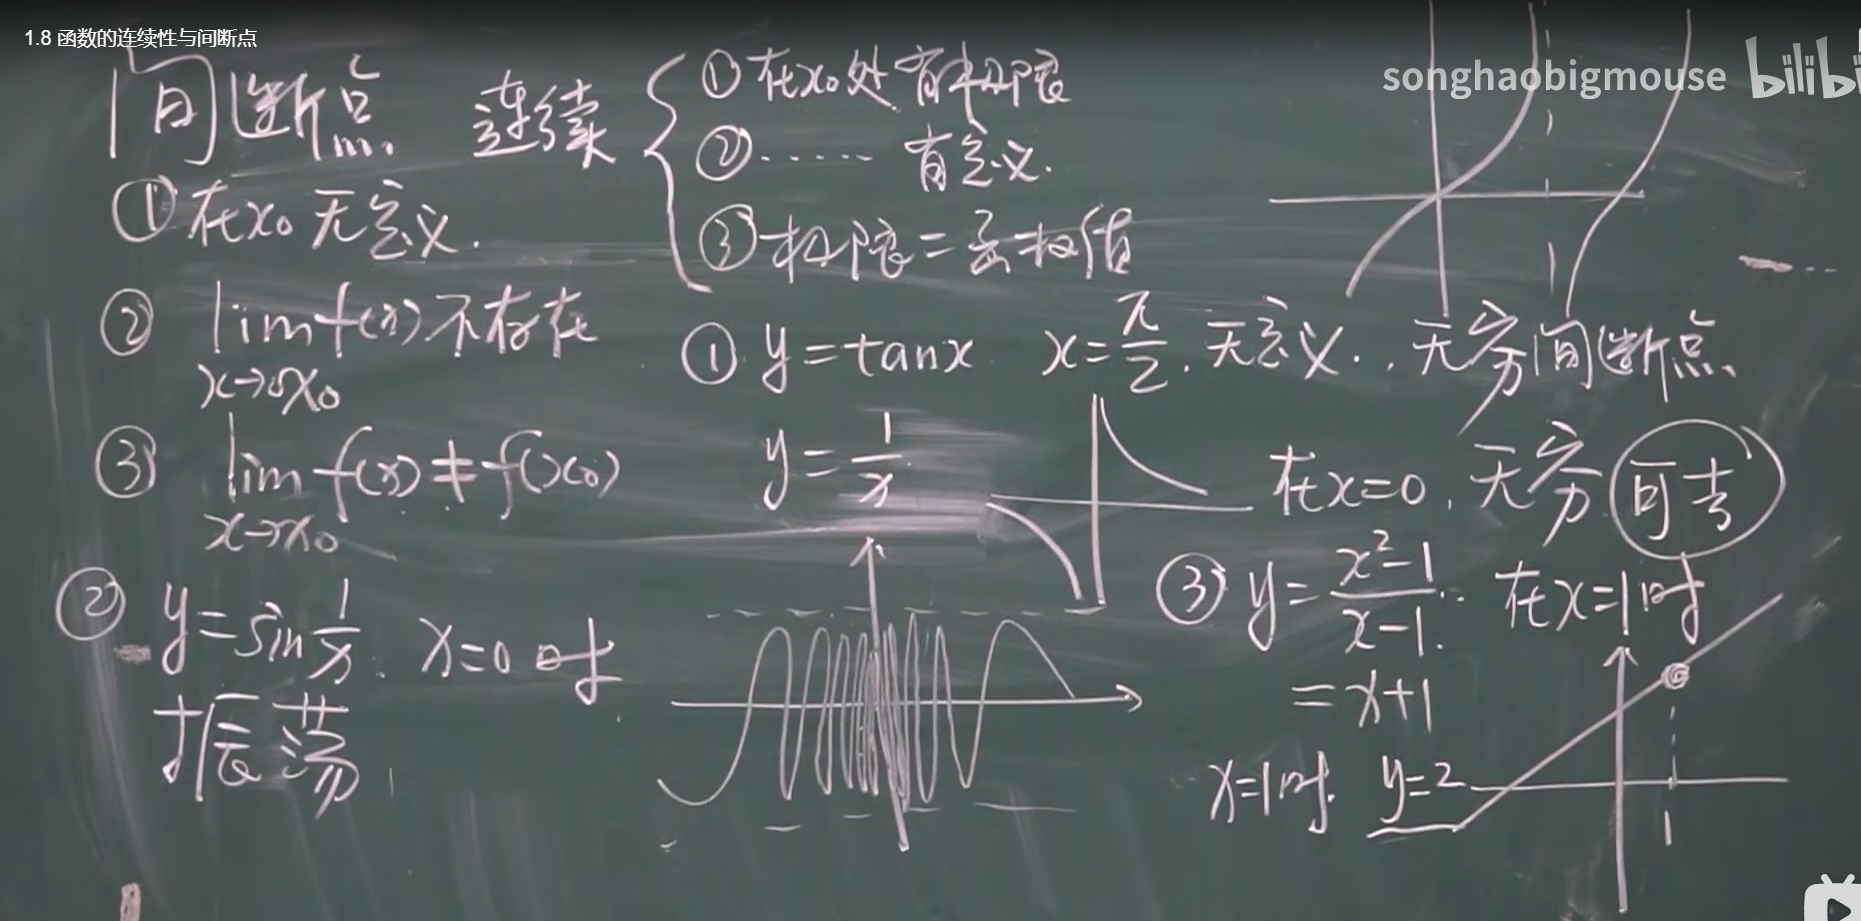 1.8 函数的连续性与间断点
songhaobigmouse
bilibi
间断点 连续
①在x₀处有极限
②…… 有定义.
③极限=函数值
①在x₀无定义.
② lim f(x)不存在
x→x₀
③ lim f(x)≠f(x₀)
x→x₀
① y=tanx x=π/2. 无定义. 无穷间断点.
y=1/x 在x=0, 无穷 可去
② y=sin 1/x. x=0时
振荡
③ y=(x²-1)/(x-1). 在x=1时
=x+1
x=1时. y=2